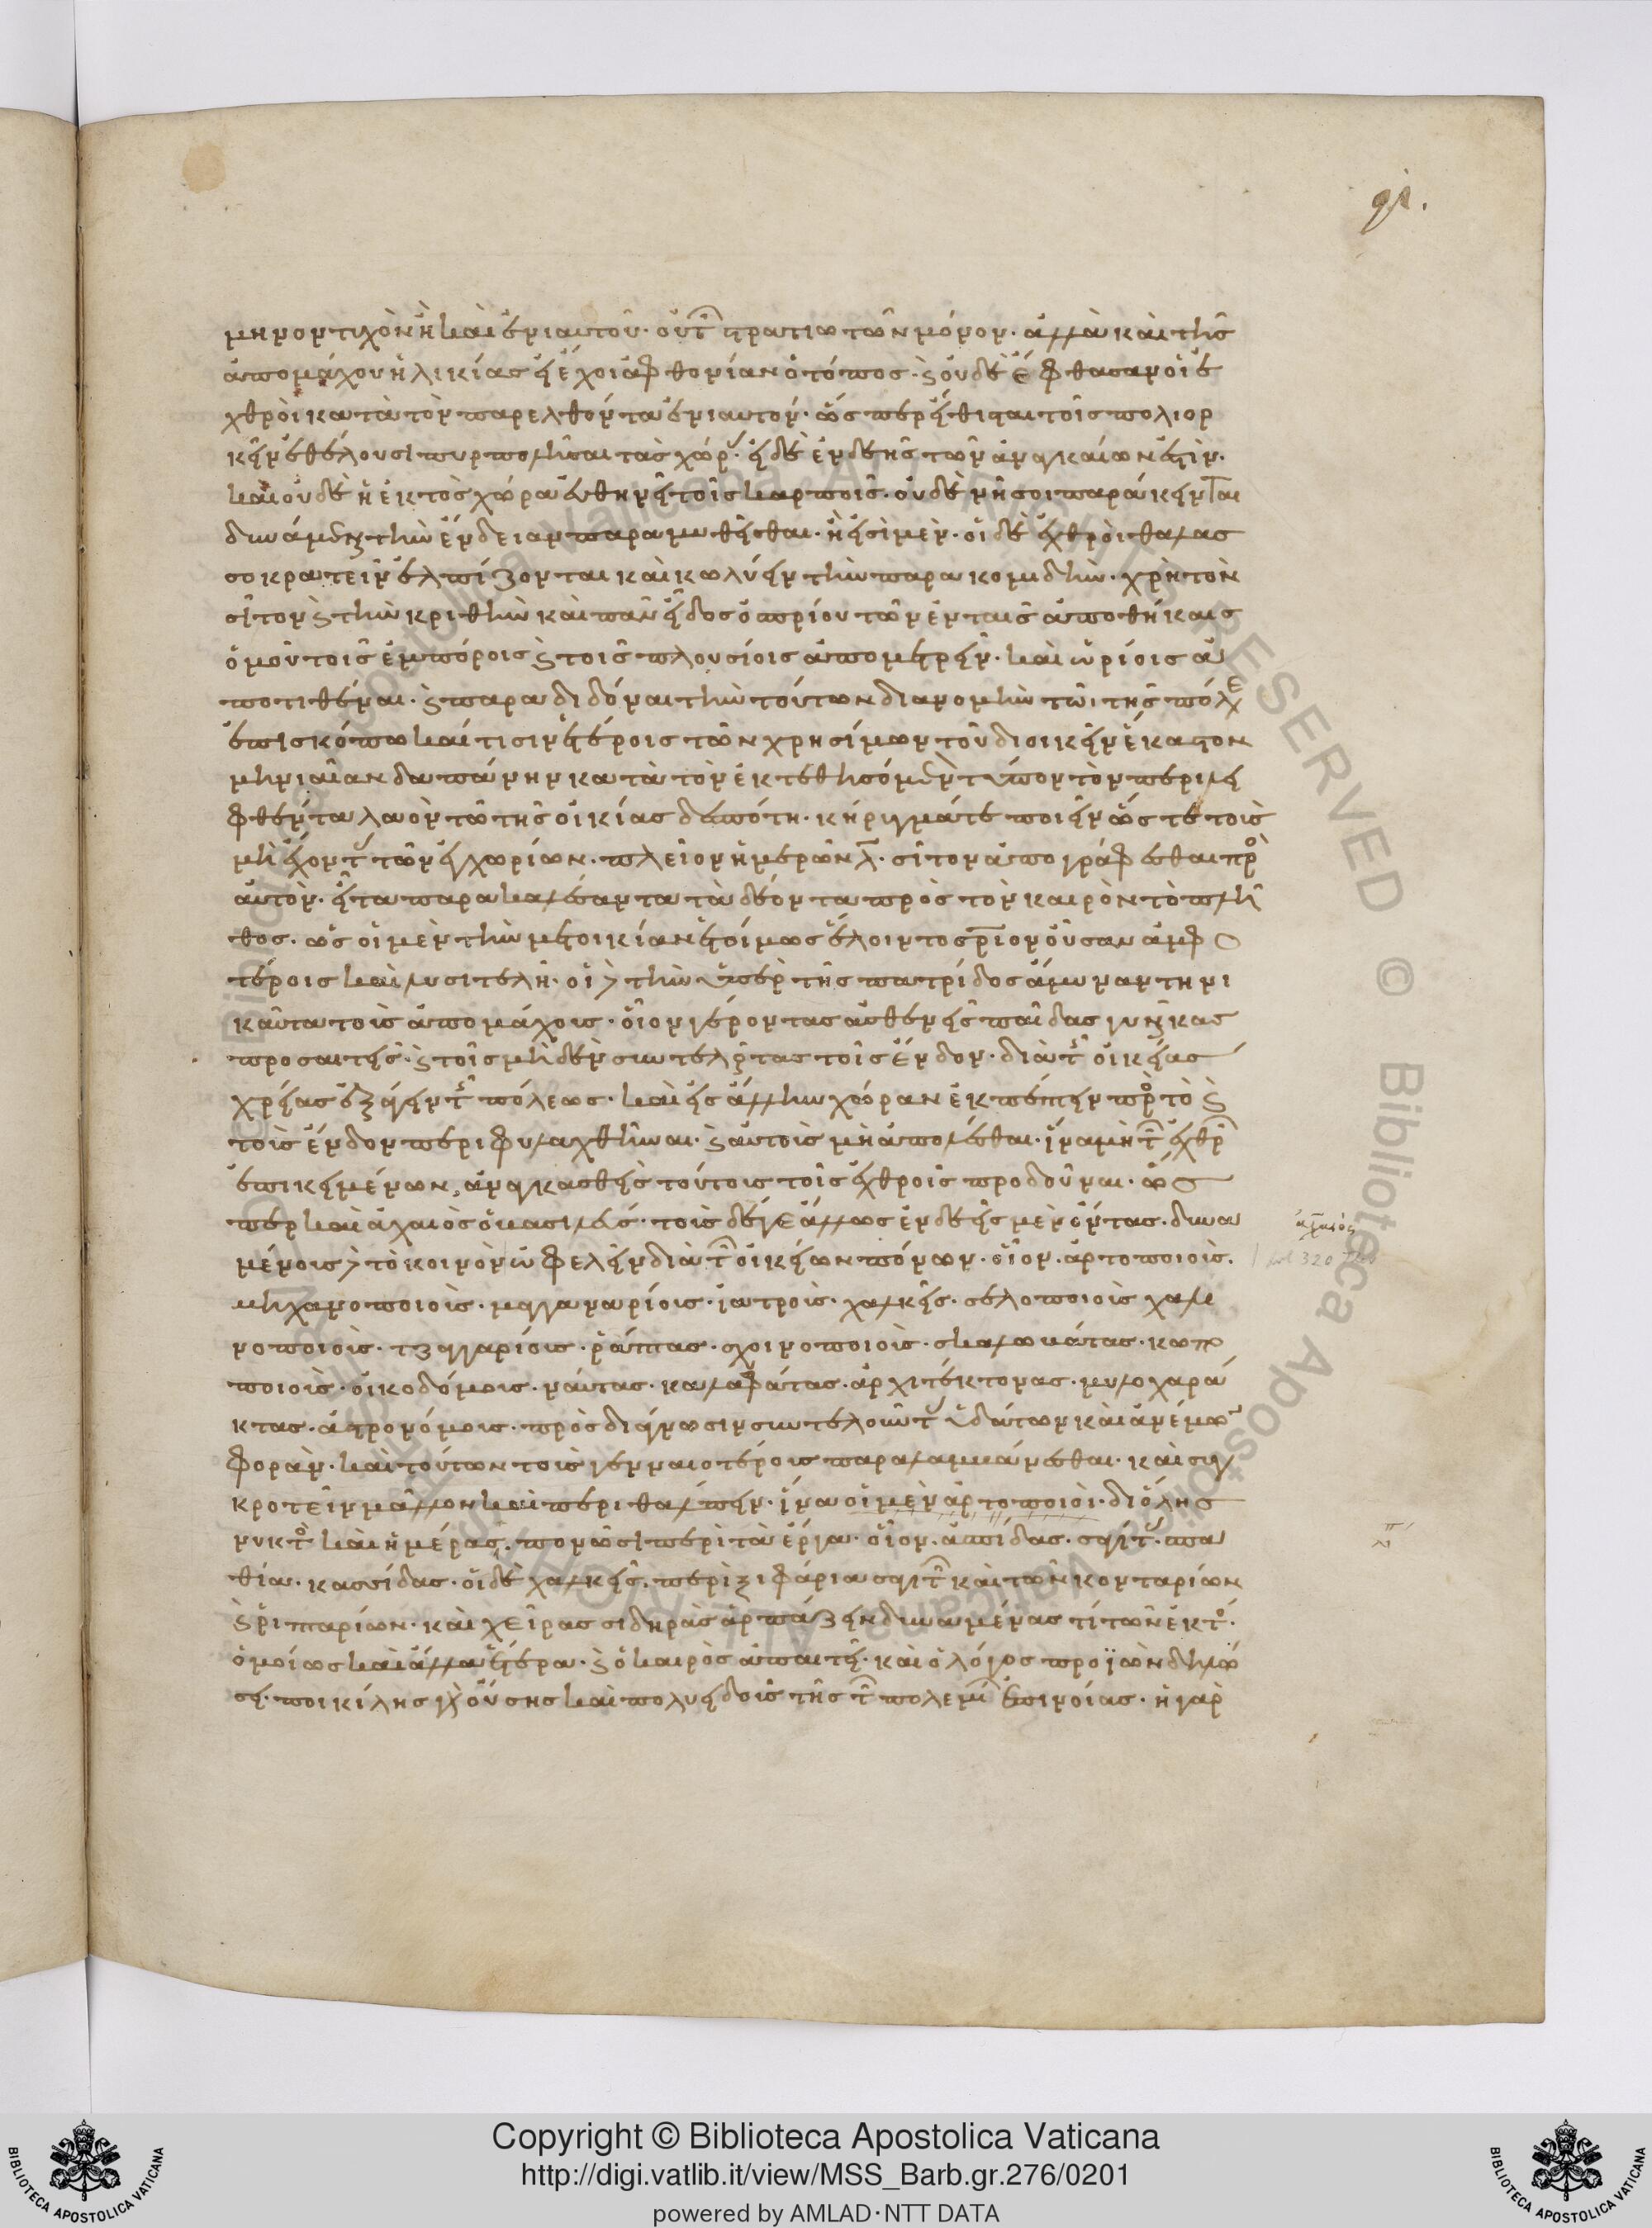 91.
μηνον τυχὸν ἢ καὶ ἐνιαυτοῦ· οὐ τ στρατιωτῶν μόνον· ἀλλὰ καὶ τῆς
ἀπομάχου ἡλικίας εἰ ἔχοι ἀφθονίαν ὁ τόπος· καὶ οὐδὲ ἔφθασαν οἱ ἐ
χθροὶ κατὰ τὸν παρελθόντα ἐνιαυτόν· ὥσπερ εἴθισται τοῖς πολιορ
κεῖν ἐθέλουσι πυρπολῆσαι τὰς χώρας· εἰ δὲ ἐνδεὴς τῶν ἀναγκαίων ἐστίν·
καὶ οὐδὲ ἡ ἐκτὸς χώρα εὐθηνεῖ τοῖς καρποῖς· οὐδὲ νῆσοι παράκεινται
δυνάμεναι τὴν ἔνδειαν παραμυθεῖσθαι· ἢ εἰσὶ μὲν· οἱ δὲ ἐχθροὶ θαλασ
σοκρατεῖν ἐλπίζονται καὶ κωλύειν τὴν παρακομιδὴν· χρὴ τὸν
σῖτον καὶ τὴν κριθὴν καὶ πᾶν εἶδος ὀσπρίου τῶν ἐν ταῖς ἀποθήκαις
ὁμοῦ τοῖς ἐμπόροις καὶ τοῖς πλουσίοις ἀπομετρεῖν· καὶ ὡρίοις ἀ
ποτιθέναι· καὶ παραδιδόναι τὴν τούτων διανομὴν τῶι τῆς πόλε
ἐπισκόπω καί τισιν ἑτέροις τῶν χρησίμων τοῦ διοικεῖν ἕκαστον
μηνιαίαν δαπάνην κατὰ τὸν ἐκτεθησόμενον τύπον τὸν περιλει
φθέντα λαὸν τῶ τῆς οἰκίας δεσπότη· κήρυγμά τε ποιεῖν ὥστε τοὺς
μὴ ἔχοντας τῶν ἐγχωρίων· πλεῖον ἡμερῶν λ· σῖτον ἀπογράφεσθαι πρὸς
αὐτόν· εἶτα παρακαλέσαντα τὰ δέοντα πρὸς τὸν καιρὸν τὸ πλῆ
θος· ὡς οἱ μὲν τὴν μετοικίαν ἑτοίμως ἕλοιντο σωτήριον οὖσαν ἀμφο
τέροις καὶ λυσιτελῆ· οἱ δὲ τὴν ὑπὲρ τῆς πατρίδος ἄμυναν τηνι
καῦτα τοὺς ἀπομάχους· οἷον γέροντας ἀσθενεῖς παῖδας γυναῖκας
προσαίτας· καὶ τοῖς μηδὲν συντελοῦντας τοῖς ἔνδον· διὰ τῆς οἰκείας
χρείας ἐξάγειν τῆς πόλεως· καὶ εἰς ἄλλην χώραν ἐκπέμπειν πρὸς τὸ καὶ
τοὺς ἔνδον περιφυλαχθῆναι· καὶ αὐτοὺς μὴ ἀπολέσθαι· ἵνα μὴ τῶν ἐχθρῶν
ἐπικειμένων, ἀναγκασθεὶς τούτους τοῖς ἐχθροῖς προδοῦναι· ὥς
περ καὶ ἀχαιὸς ὁ βασιλεύς· τοὺς δέ γε ἄλλως ἐνδεεῖς μὲν ὄντας· δυνα
μένους δὲ τὸ κοινὸν ὠφελεῖν διὰ τῶν οἰκείων πόνων· οἷον· ἀρτοποιοὺς·
μηχανοποιοὺς· μαγγαναρίους· ἰατροὺς· χαλκεῖς· σελοποιοὺς χαλι
νοποιοὺς· τζαγγαρίους· ῥάπτας· σχοινοποιοὺς· σκαλωβάτας· κωπο
ποιοὺς· οἰκοδόμους· ναύτας· καλαφάτας· ἀρχιτέκτονας· μυλοχαρά
κτας· ἀστρονόμους· πρὸς διάγνωσιν συντελοῦντας ὑδάτων καὶ ἀνέμων
φορὰν· καὶ τούτων τοὺς γενναιοτέρους παραλαμβάνεσθαι· καὶ συγ
κροτεῖν μᾶλλον καὶ περιθάλπειν· ἵνα οἱ μὲν ἀρτοποιοὶ· διόλης
νυκτὸς καὶ ἡμέρας, πονῶσι περὶ τὰ ἔργα· οἷον· ἀσπίδας· σαγίτας· σπα
θία· κασσίδας· οἱ δὲ χαλκεῖς, περὶ ξιφάρια σαγιτῶν καὶ τῶν κονταρίων
καὶ ῥιπταρίων· καὶ χεῖρας σιδηρὰς ἁρπάζειν δυναμένας τί τῶν ἐκτὸς·
ὁμοίως καὶ ἄλλα ἕτερα· καὶ ὁ καιρὸς ἀπαιτεῖ· καὶ ὁ λόγος προϊὼν δηλώ
σει· ποικίλης γὰρ οὔσης καὶ πολυειδοῦς τῆς τῶν πολεμίων ἐπινοίας· ἡ γὰρ
ἀχαιὸς
Copyright © Biblioteca Apostolica Vaticana
http://digi.vatlib.it/view/MSS_Barb.gr.276/0201
powered by AMLAD·NTT DATA